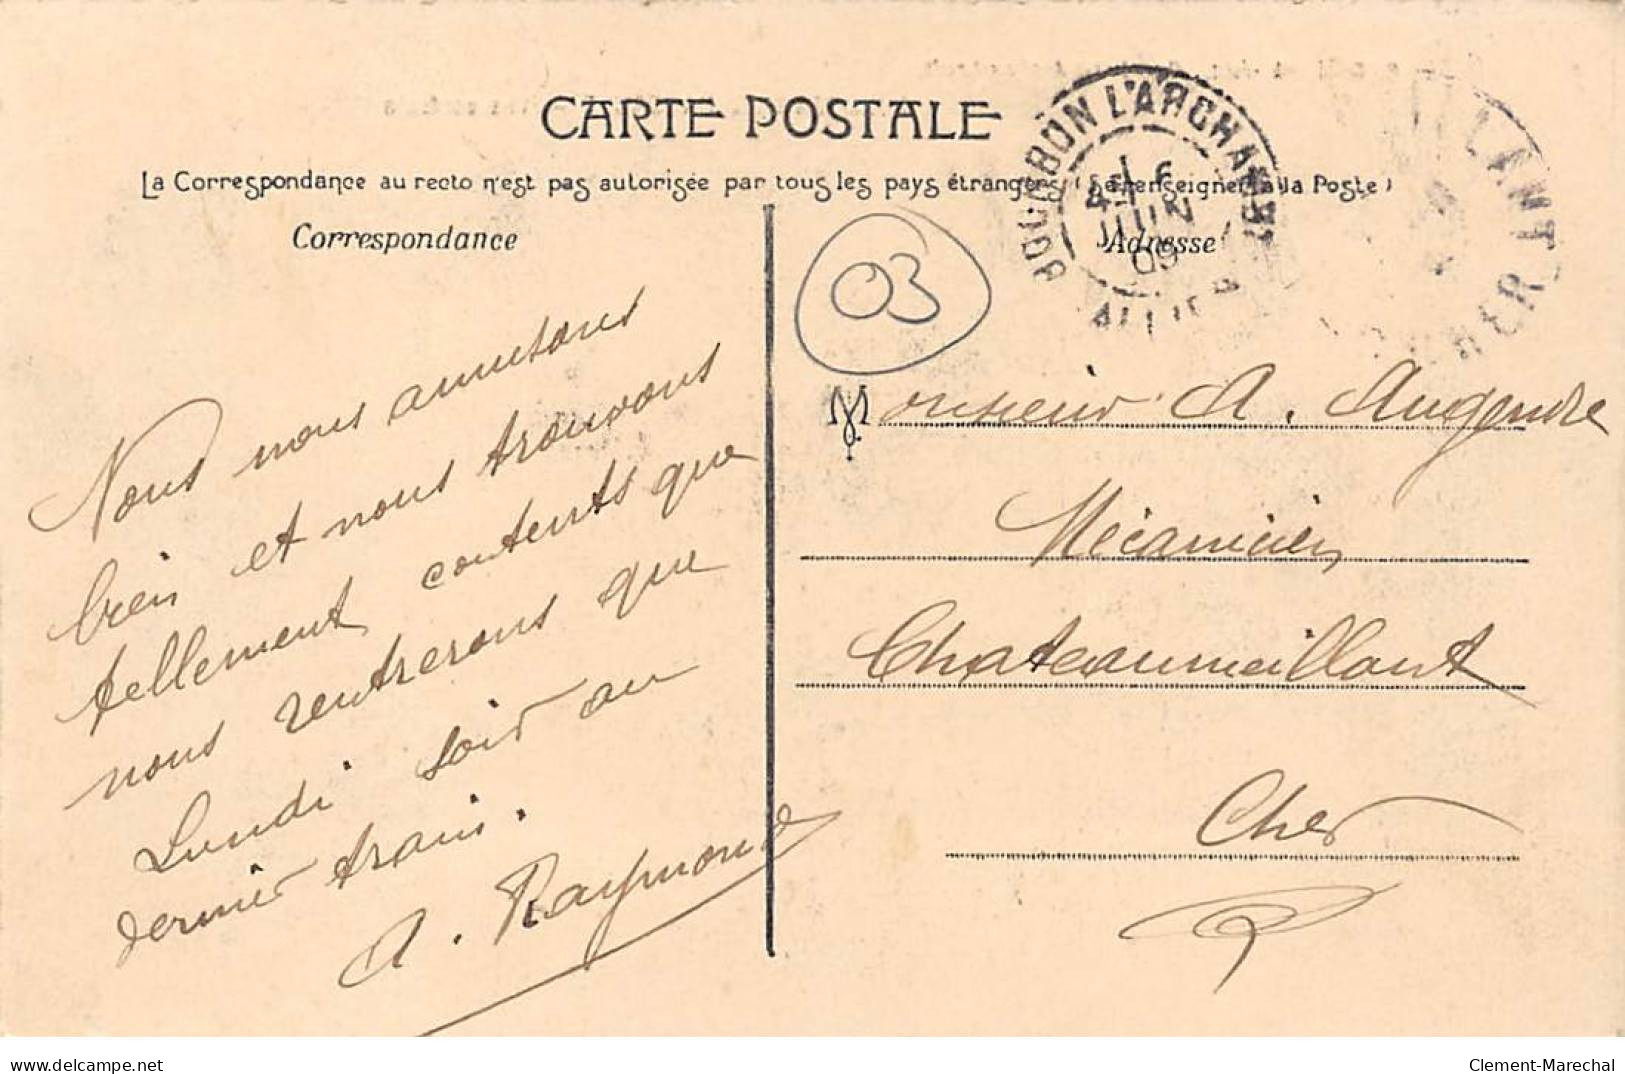 CARTE POSTALE
La Correspondance au recto n'est pas autorisée par tous les pays étrangers (Se renseigner à la Poste)
Correspondance
Adresse
BOURBON L'ARCHAMBT
6
JUIN
09
ALLIER
LLANT
CHER
03
Nous nous amusons
bien et nous trouvons
tellement contents que
nous rentrerons que
Lundi soir au
dernier train.
A. Raymond
Monsieur A. Augendre
Mécanicien
Chateaumeillant
Cher
delcampe.net
Clement-Marechal